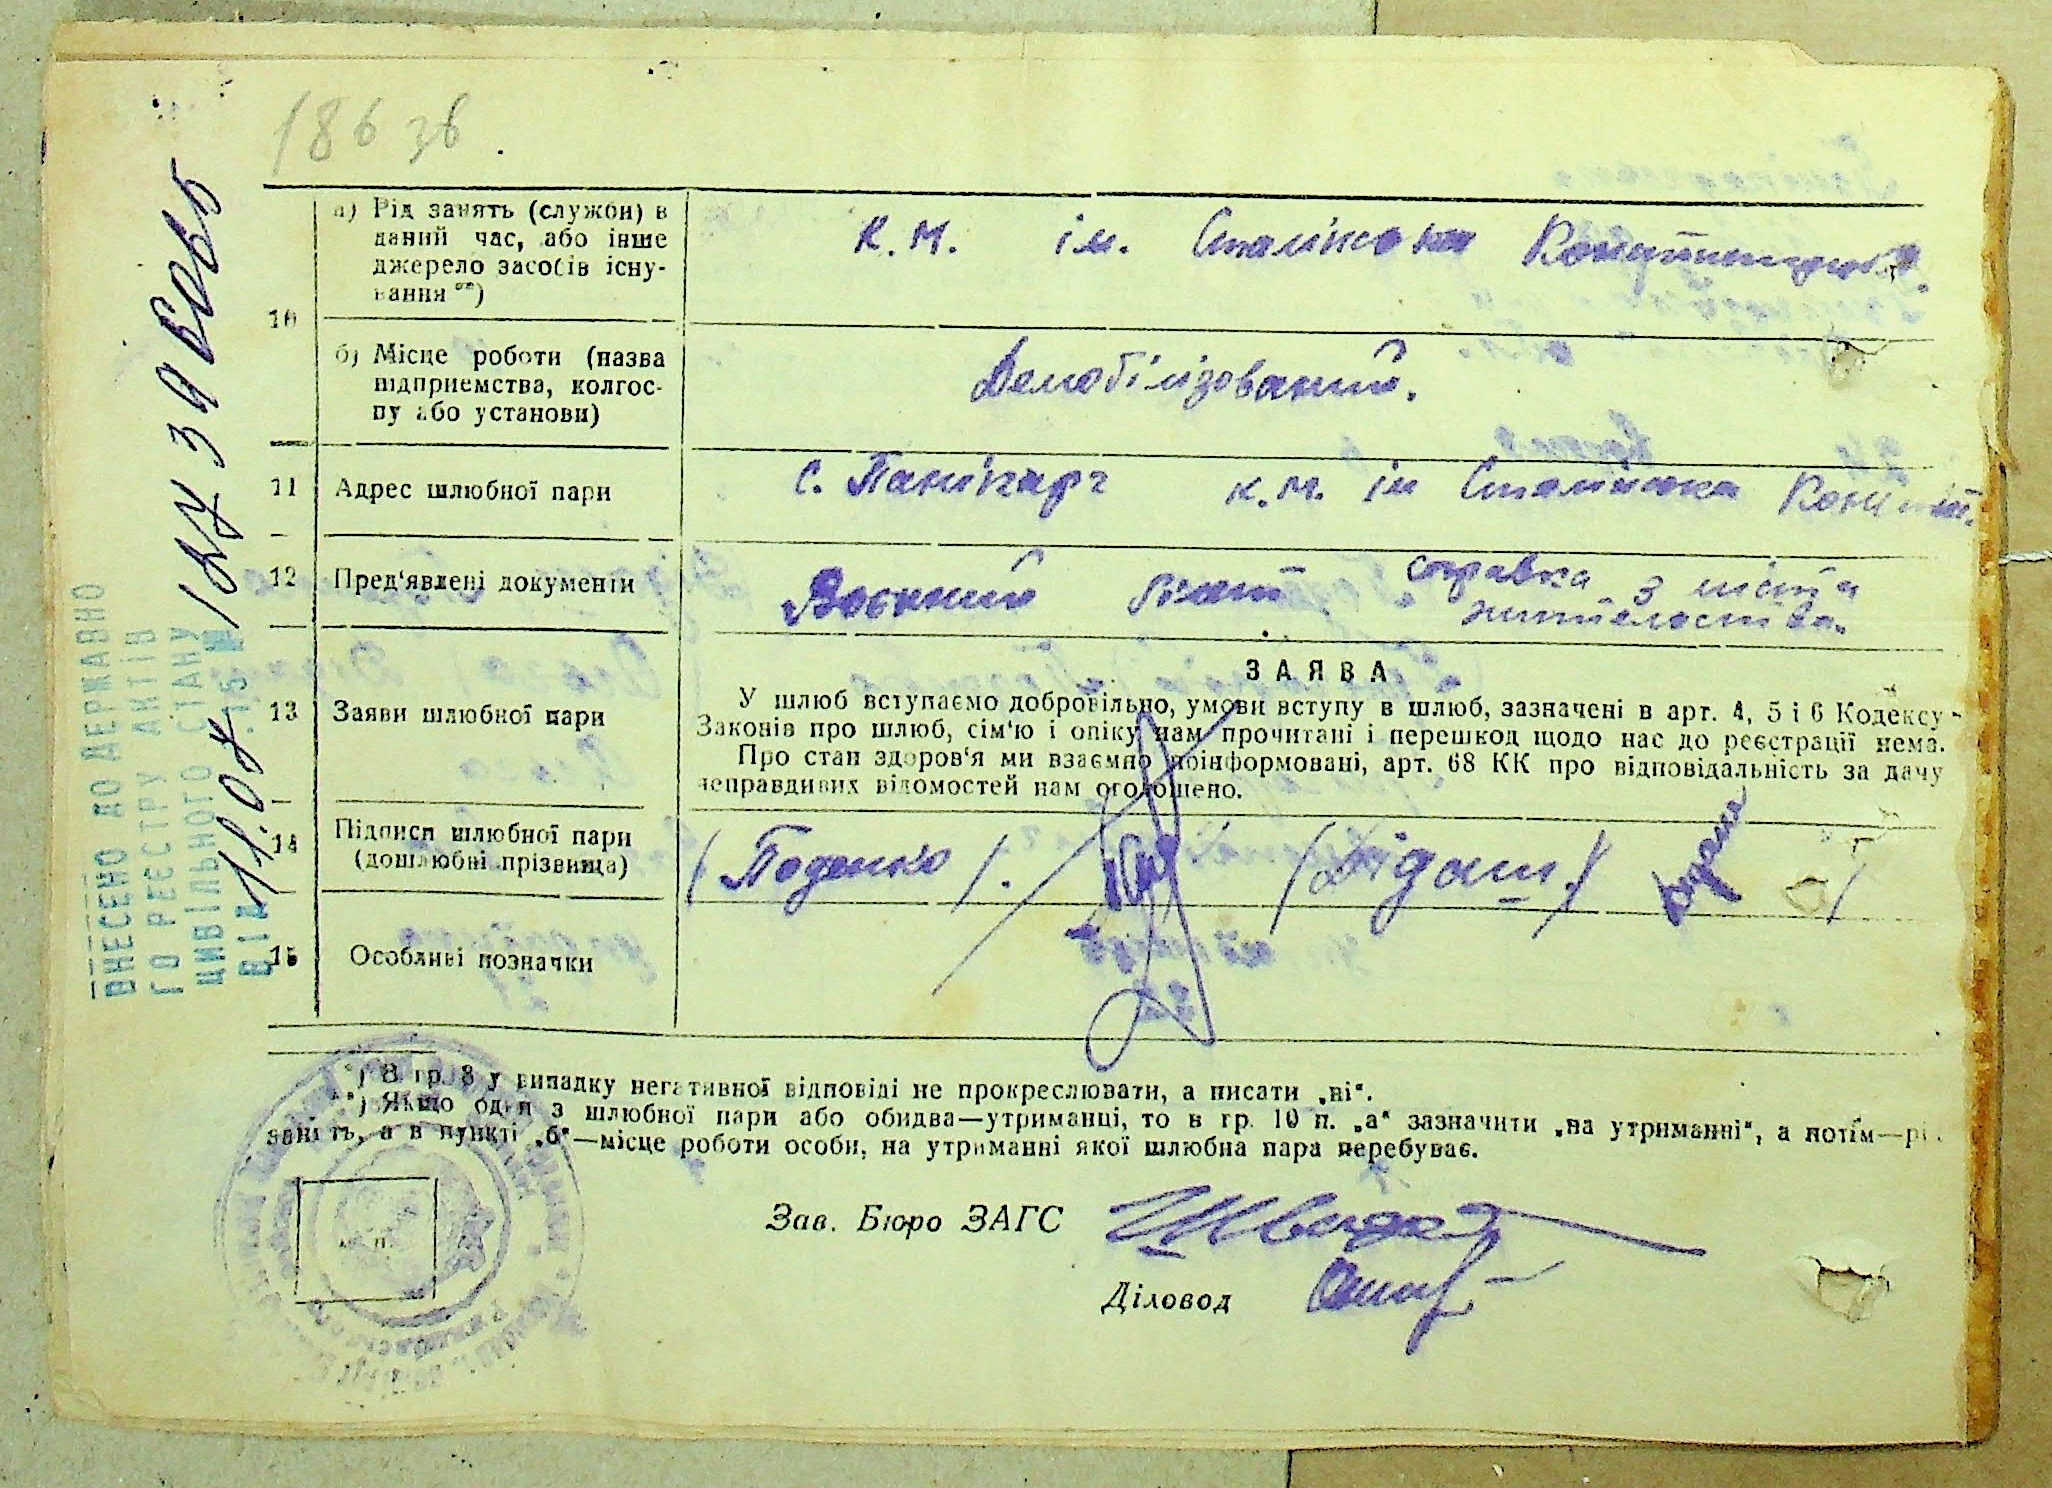 186 зв.
а) Рід занять (служби) в
даний час, або інше
джерело засобів існу-
вання **)
к. м. ім. Сталінська Конституція.
10
б) Місце роботи (назва
підприємства, колгос-
пу або установи)
Демобілізований.
11 Адрес шлюбної пари
с. к. м. ім Сталінська Констит.
12 Пред'явлені документи
Воєнний білєт справка з міста
жительства.
13 Заяви шлюбної пари
ЗАЯВА
У шлюб вступаємо добровільно, умови вступу в шлюб, зазначені в арт. 4, 5 і 6 Кодексу
Законів про шлюб, сім'ю і опіку нам прочитані і перешкод щодо нас до реєстрації нема.
Про стан здоров'я ми взаємно поінформовані, арт. 68 КК про відповідальність за дачу
неправдивих відомостей нам оголошено.
14 Підписи шлюбної пари
(дошлюбні прізвища)
(Поденко). (Дідаш.)
15 Особливі позначки
*) В гр. 8 у випадку негативної відповіді не прокреслювати, а писати „ні“.
**) Якщо один з шлюбної пари або обидва—утриманці, то в гр. 10 п. „а“ зазначити „на утриманні“, а потім—рід
занять, а в пункті „б“—місце роботи особи, на утриманні якої шлюбна пара перебуває.
Зав. Бюро ЗАГС
Діловод
м. п.
ВНЕСЕНО ДО ДЕРЖАВНО
ГО РЕЄСТРУ АКТІВ
ЦИВІЛЬНОГО СТАНУ
ВІД 11.07.15 №